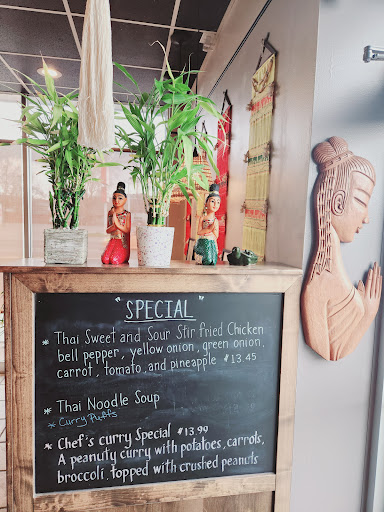 "SPECIAL"
* Thai Sweet and Sour Stir fried Chicken
bell pepper, yellow onion, green onion,
carrot, tomato, and pineapple $13.45
* Thai Noodle Soup
* Curry Puffs
* Chef's curry Special $13.99
A peanuty curry with potatoes, carrols,
broccoli, topped with crushed peanuts